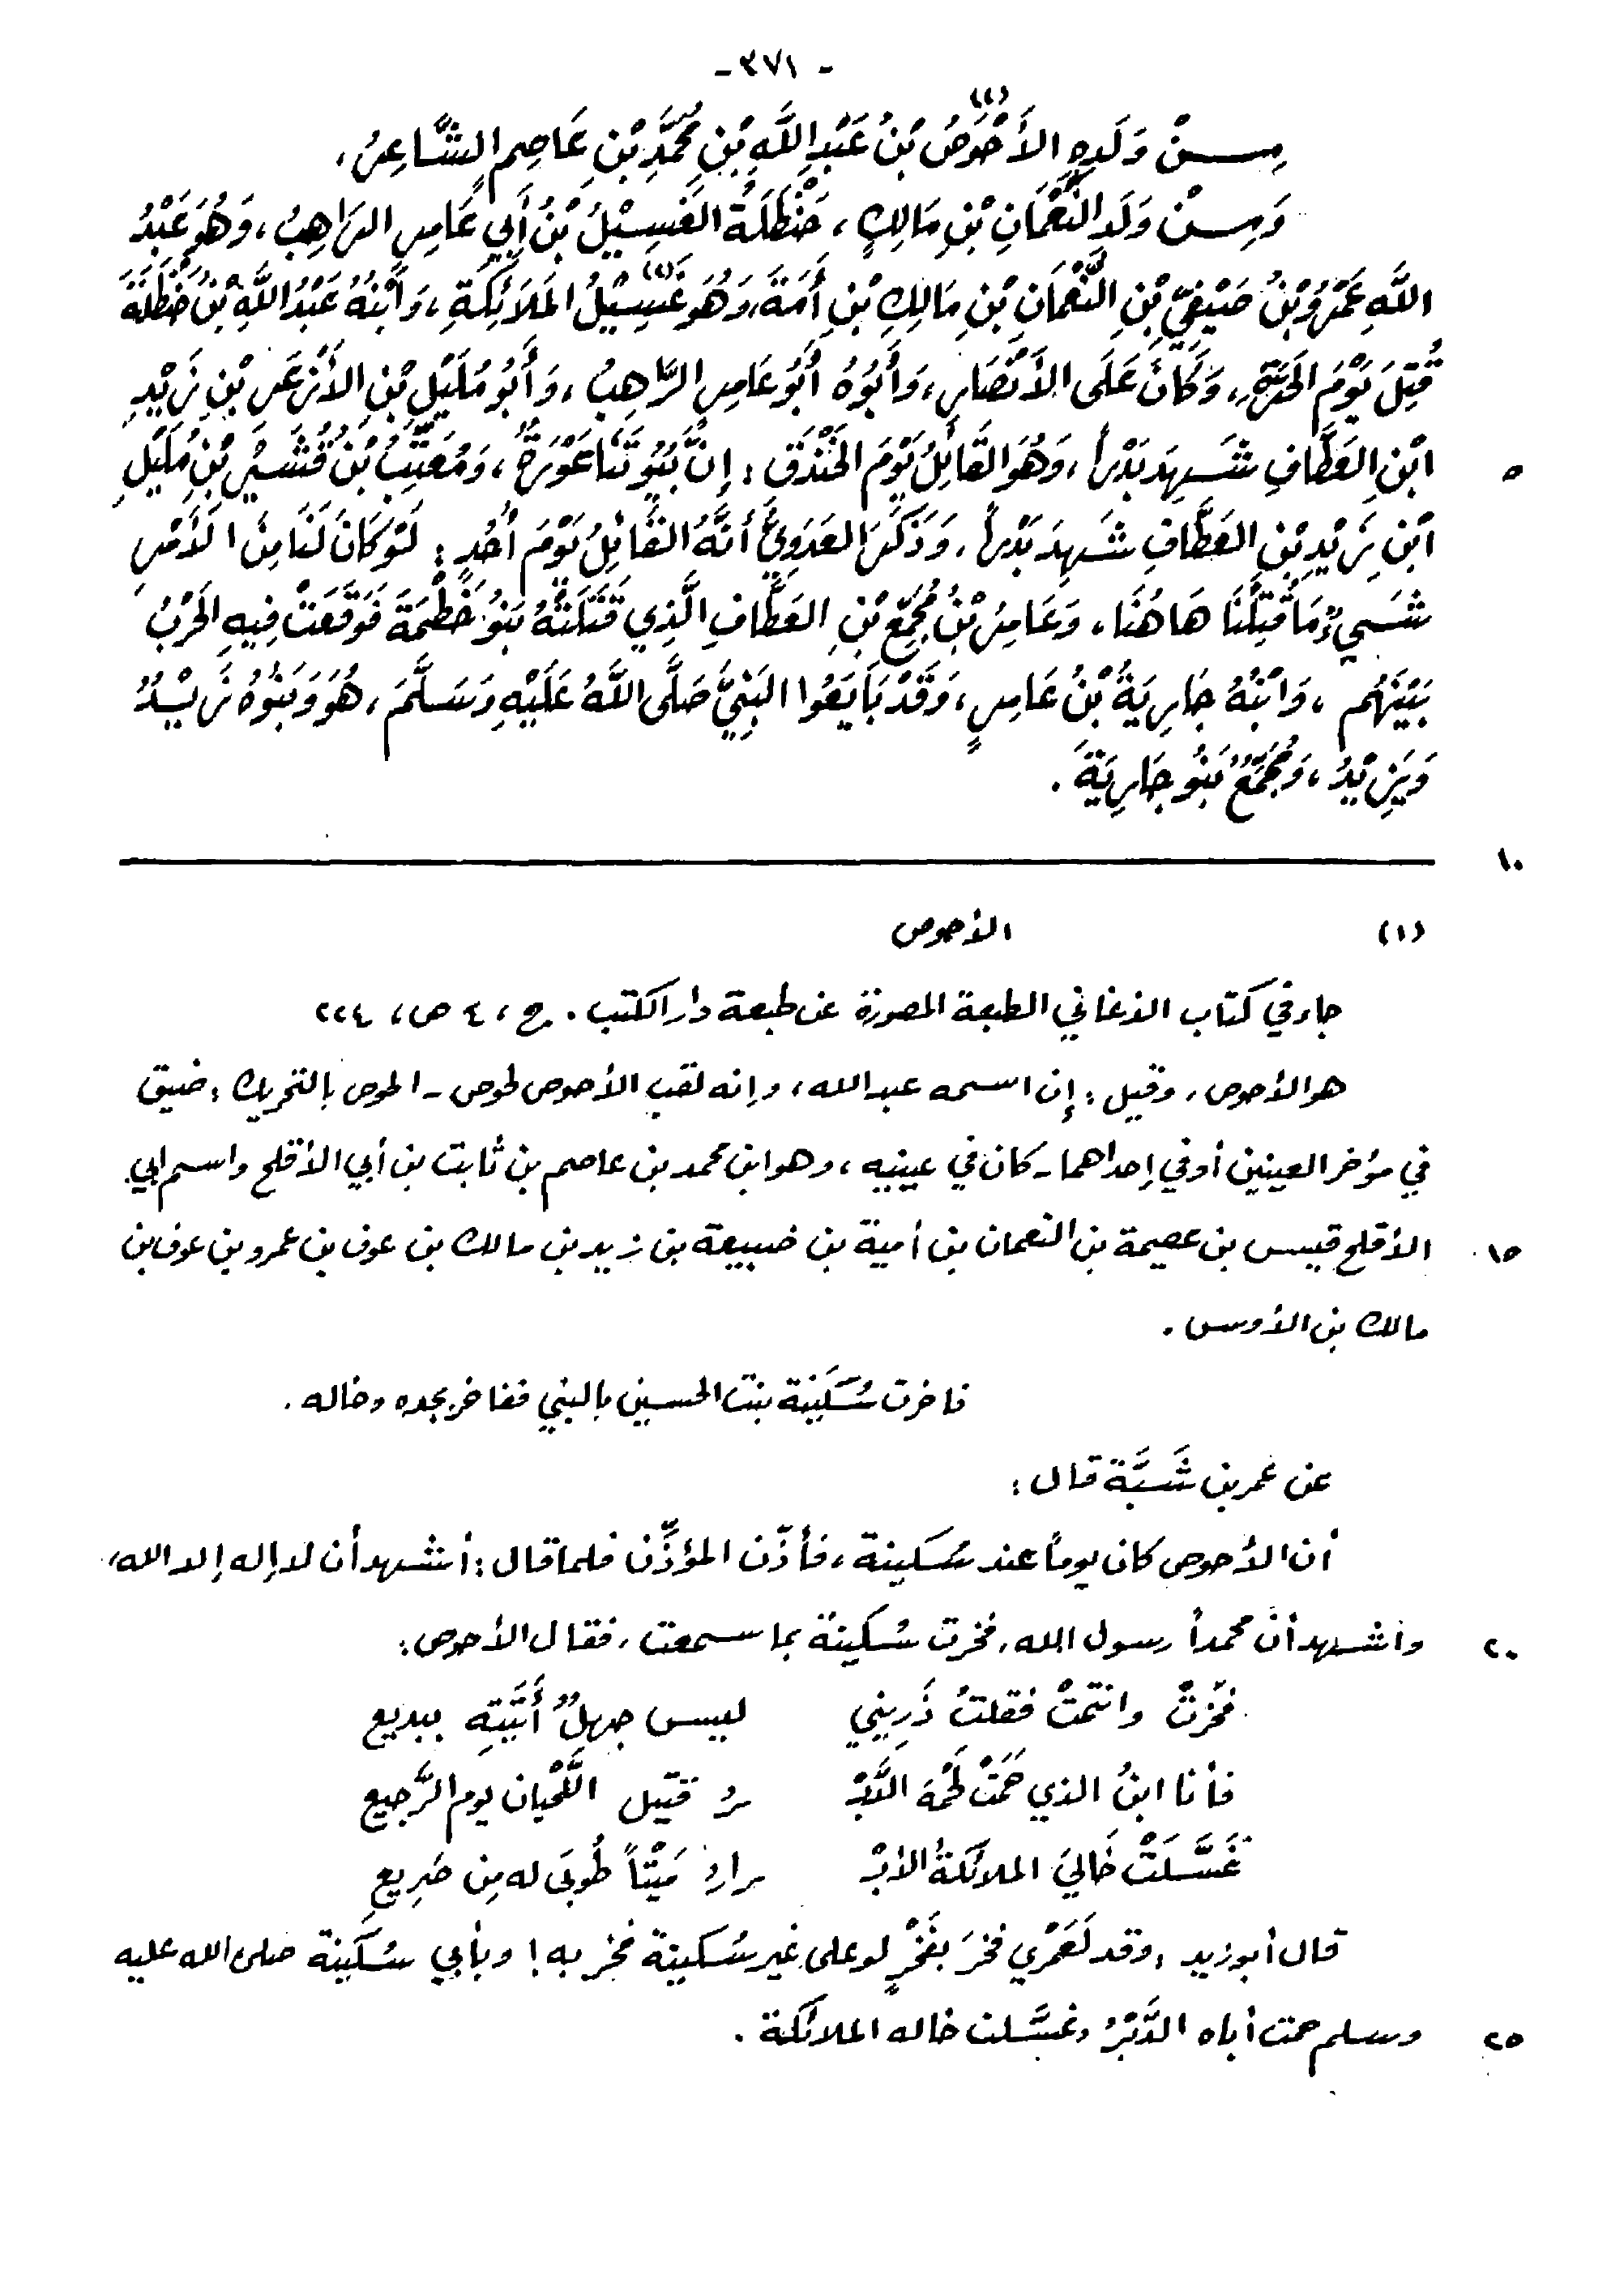 - ٣٧١ -
مِنْ وَلَدِهِ الأَحْوَصُ (١) بْنُ عَبْدِ اللَّهِ بْنِ مُحَمَّدِ بْنِ عَاصِمٍ الشَّاعِرُ،
وَمِنْ وَلَدِ النُّعْمَانِ بْنِ مَالِكٍ، حَنْظَلَةُ الغَسِيْلُ بْنُ أَبِي عَامِرٍ الرَاهِبُ، وَهُوَ عَبْدُ
اللَّهِ عَمْرُو بْنُ صَيْفِيِّ بْنِ النُّعْمَانِ بْنِ مَالِكِ بْنِ أَمَةَ، وَهُوَ غَسِيْلُ (٢) المَلَائِكَةِ، وَابْنُهُ عَبْدُ اللَّهِ بْنُ حَنْظَلَةَ
قُتِلَ يَوْمَ الحَرَّةِ، وَكَانَ عَلَى الأَنْصَارِ، وَأَبُوهُ أَبُو عَامِرٍ الرَّاهِبُ، وَأَبُو مُلَيْلِ بْنِ الأَزْعَرِ بْنِ زَيْدِ
ابْنِ العَطَّافِ شَهِدَ بَدْراً، وَهُوَ القَائِلُ يَوْمَ الخَنْدَقِ: إِنَّ بُيُوتَنَا عَوْرَةٌ، وَمُعَتِّبُ بْنُ قُشَيْرِ بْنِ مُلَيْلِ
٥
ابْنِ زَيْدِ بْنِ العَطَّافِ شَهِدَ بَدْراً، وَذَكَرَ العَدَوِيُّ أَنَّهُ القَائِلُ يَوْمَ أُحُدٍ: لَوْ كَانَ لَنَا مِنَ الأَمْرِ
شَيءٌ مَا قُتِلْنَا هَاهُنَا، وَعَامِرُ بْنُ مُجَمِّعِ بْنِ العَطَّافِ الَّذِي قَتَلَتْهُ بَنُو خَطْمَةَ فَوَقَعَتْ فِيهِ الحَرْبُ
بَيْنَهُم، وَابْنُهُ جَارِيَةُ بْنُ عَامِرٍ، وَقَدْ بَايَعُوا النَبِيَّ صَلَّى اللَّهُ عَلَيْهِ وَسَلَّمَ، هُوَ وَبَنُوهُ زَيْدُ
وَيَزِيْدُ، وَمُجَمِّعُ بَنُو جَارِيَةَ.
١٠
(١) الأحوص
جاء في كتاب الأغاني الطبعة المصورة عن طبعة دار الكتب. ج، ٤ ص، ٢٢٤
هو الأحوص، وقيل: إن اسمه عبد الله، وإنه لقب الأحوص لحوص - الحوص بالتحريك: ضيق
في مؤخر العينين أو في إحداهما - كان في عينيه، وهو ابن محمد بن عاصم بن ثابت بن أبي الأقلح واسم أبي
الأقلح قيس بن عصيمة بن النعمان بن أمية بن ضبيعة بن زيد بن مالك بن عوف بن عمرو بن عوف بن
١٥
مالك بن الأوس.
فاخرت سُكَينة بنت الحسين بالنبي ففاخر بجده وخاله.
عن عمر بن شَبَّة قال:
أن الأحوص كان يوماً عند سُكينة، فأذّن المؤذِّن فلما قال: أشهد أن لا إله إلا الله،
واشهد أن محمداً رسول الله، فخرت سُكينة بما سمعت، فقال الأحوص:
٢٠
فَخَرَتْ وانتمتْ فقلتُ ذَرِيني ليس جهلٌ أَتَيتِه ببديع
فأنا ابنُ الذي حَمَتْ لَحْمَه الدَّبْـ ـرُ قتيل اللَّحْيان يوم الرَّجيع
غَسَّلَتْ خَاليَ الملائكةُ الأبْـ ـرارُ مَيْتاً طُوبَى له مِن صَرِيعِ
قال أبو زيد، وقد لَعَمْري فخرَ بفَخْرٍ لو على غير سُكينة فخر به! وبأبي سُكَينة صلى الله عليه
وسلم حمت أباه الدَّبْرُ وغسَّلت خاله الملائكة.
٢٥